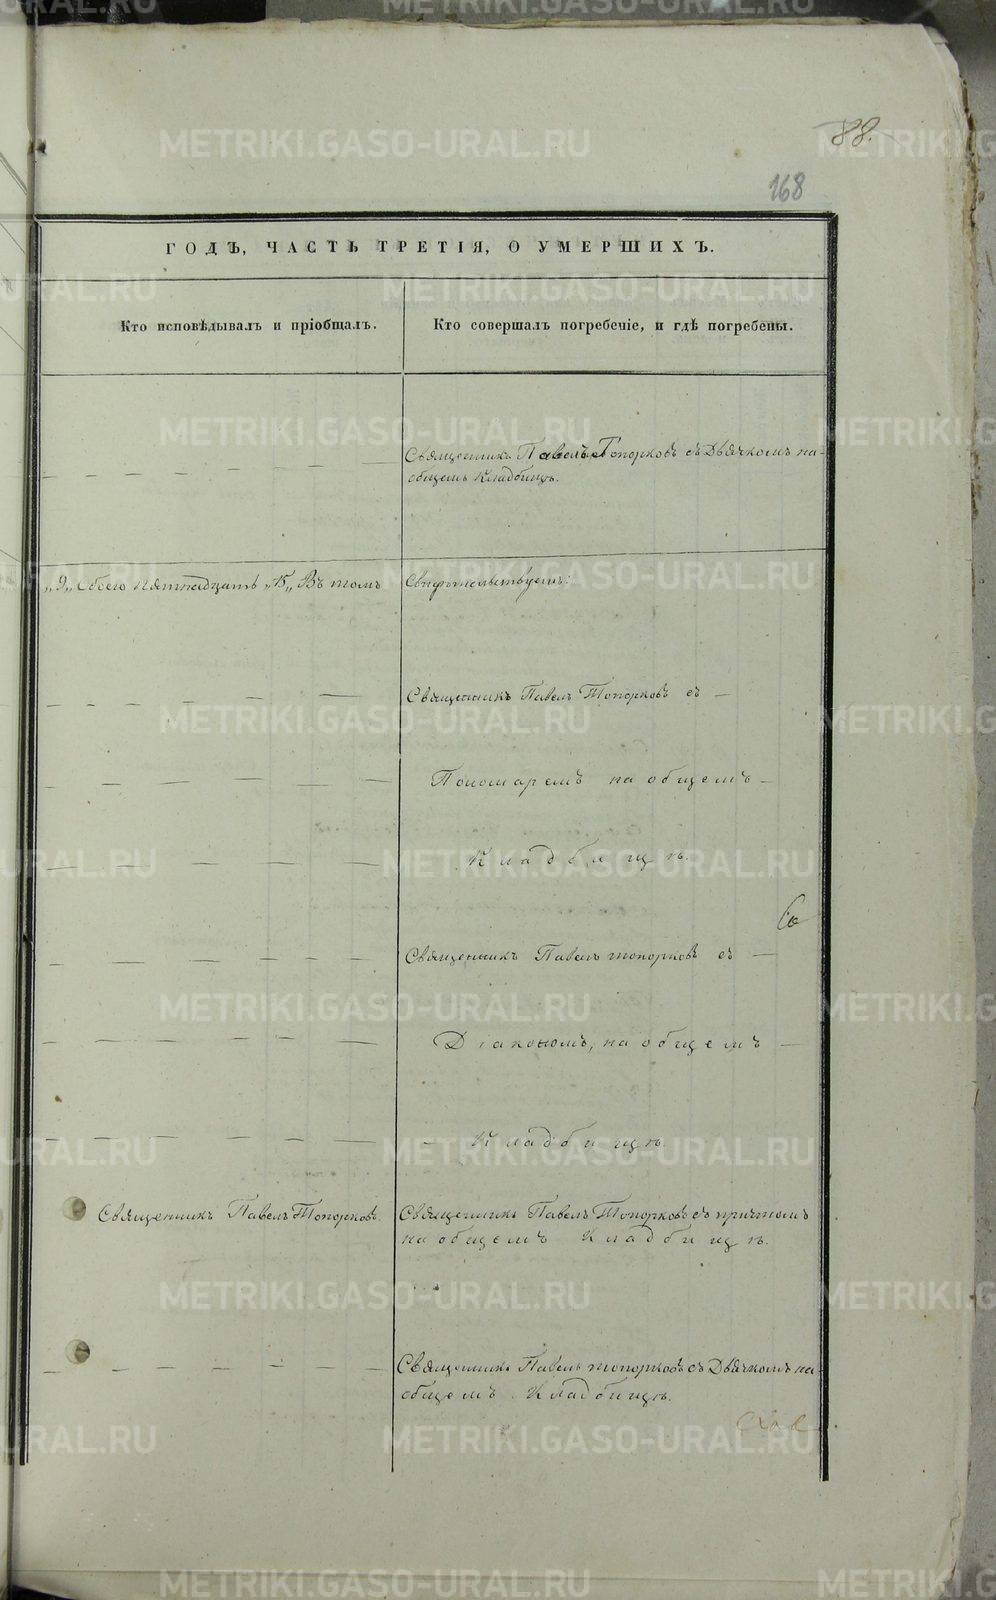 88.
168
ГОДЪ, ЧАСТЬ ТРЕТІЯ, О УМЕРШИХЪ.
Кто исповѣдывалъ и пріобщалъ.
Кто совершалъ погребеніе, и гдѣ погребены.
Священникъ Павелъ Топорковъ съ Дьячкомъ на
общемъ Кладбищѣ.
„9„ Обоего пятнадцать „15„ Въ томъ
Свидѣтельствуемъ:
Священникъ Павелъ Топорковъ съ —
Пономаремъ на общемъ —
Кладбищѣ.
Священникъ Павелъ топорковъ съ —
Діакономъ, на общемъ —
Кладбищѣ
Священникъ Павелъ Топорковъ.
Священникъ Павелъ Топорковъ съ причтомъ
на общемъ Кладбищѣ.
Священникъ Павелъ топорковъ съ Дьячкомъ на
общемъ Кладбищѣ.
METRIKI.GASO-URAL.RU